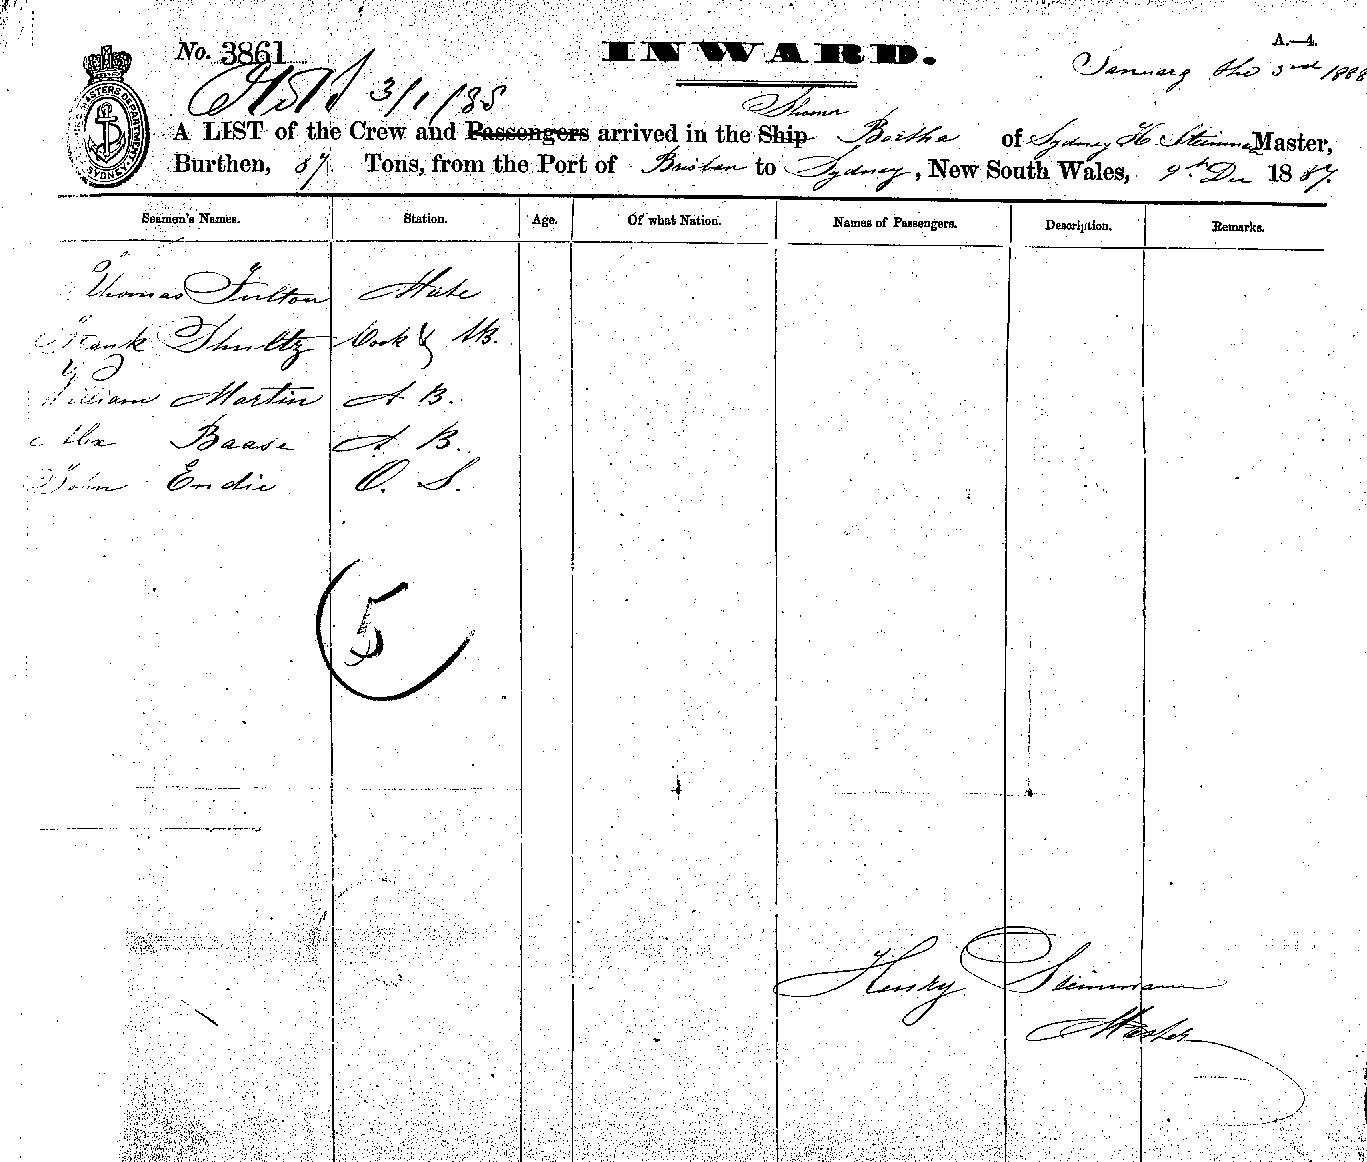 No. 3861
INWARD.
A.—4.
January the 3rd 1888
3/1/88
Steamer
A LIST of the Crew and Passengers arrived in the Ship Bertha of Sydney H Steinman Master,
Burthen, 87 Tons, from the Port of Brisban to Sydney, New South Wales, 9th Dec 1887.
Seamen's Names. Station. Age. Of what Nation. Names of Passengers. Description. Remarks.
Thomas Fulton Mate
Frank Shultz Cook & AB.
William Martin A B.
Alex Baase A B.
John Endie O. S.
5
Henry Steinmann
Master